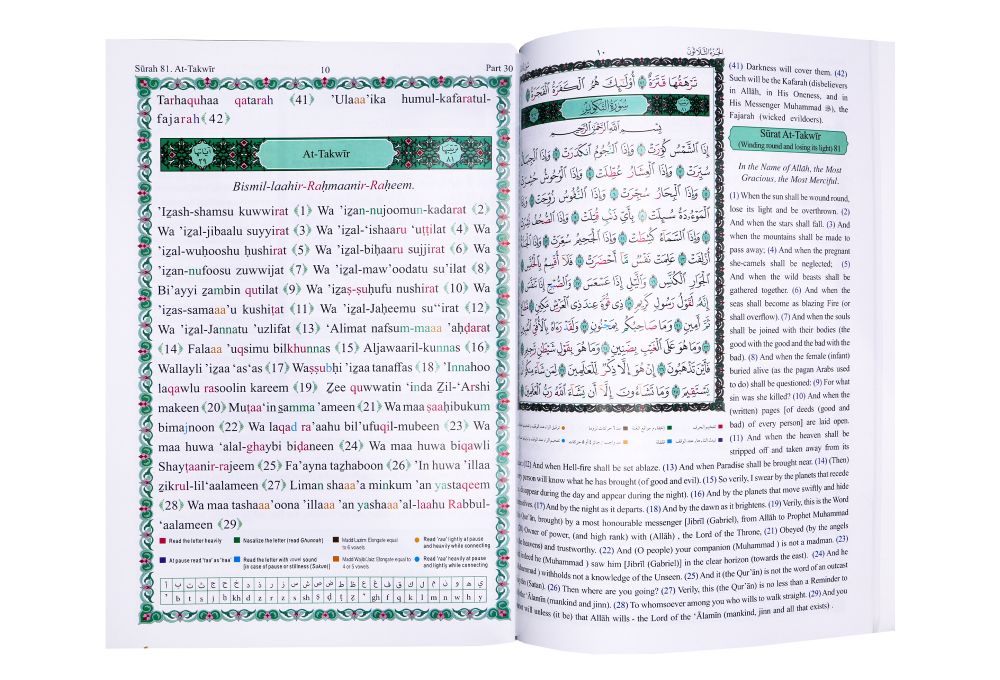 Sūrah 81. At-Takwīr 10 Part 30
Tarhaquhaa qatarah ﴾41﴿ 'Ulaaa'ika humul-kafaratul-
fajarah﴾42﴿
At-Takwīr
Bismil-laahir-Raḥmaanir-Raḥeem.
'Iẓash-shamsu kuwwirat ﴾1﴿ Wa 'iẓan-nujoomun-kadarat ﴾2﴿
Wa 'iẓal-jibaalu suyyirat ﴾3﴿ Wa 'iẓal-'ishaaru 'uṭṭilat ﴾4﴿ Wa
'iẓal-wuḥooshu ḥushirat ﴾5﴿ Wa 'iẓal-biḥaaru sujjirat ﴾6﴿ Wa
'iẓan-nufoosu zuwwijat ﴾7﴿ Wa 'iẓal-maw'oodatu su'ilat ﴾8﴿
Bi'ayyi ẓambin qutilat ﴾9﴿ Wa 'iẓaṣ-ṣuḥufu nushirat ﴾10﴿ Wa
'iẓas-samaaa'u kushiṭat ﴾11﴿ Wa 'iẓal-Jaḥeemu su‘‘irat ﴾12﴿
Wa 'iẓal-Jannatu 'uzlifat ﴾13﴿ ‘Alimat nafsum-maaa 'aḥḍarat
﴾14﴿ Falaaa 'uqsimu bilkhunnas ﴾15﴿ Aljawaaril-kunnas ﴾16﴿
Wallayli 'izaa ‘as‘as ﴾17﴿ Waṣṣubḥi 'izaa tanaffas ﴾18﴿ 'Innahoo
laqawlu rasoolin kareem ﴾19﴿ Ẓee quwwatin ‘inda Ẓil-‘Arshi
makeen ﴾20﴿ Muṭaa‘in samma 'ameen ﴾21﴿ Wa maa ṣaaḥibukum
bimajnoon ﴾22﴿ Wa laqad ra'aahu bil'ufuqil-mubeen ﴾23﴿ Wa
maa huwa ‘alal-ghaybi biḍaneen ﴾24﴿ Wa maa huwa biqawli
Shayṭaanir-rajeem ﴾25﴿ Fa'ayna taẓhaboon ﴾26﴿ 'In huwa 'illaa
ẓikrul-lil‘aalameen ﴾27﴿ Liman shaaa'a minkum 'an yastaqeem
﴾28﴿ Wa maa tashaaa'oona 'illaaa 'an yashaaa'al-laahu Rabbul-
‘aalameen ﴾29﴿
Read the letter heavily
Nasalize the letter (read GAunnah)
Madd Lazim: Elongate equal
to 6 vowels
Read 'raa' lightly at pause
and heavily while connecting
At pause read 'taa' as 'haa'
Read the letter with vowel sound
[in case of pause or stillness (Sakan)]
Madd Wajib/Jaiz: Elongate equal to
4 or 5 vowels
Read 'raa' heavily at pause
and lightly while connecting
ء ب ت ث ج ح خ د ذ ر ز س ش ص ض ط ظ ع غ ف ق ك ل م ن و ه ي
الجزء الثلاثون ١٠
تَرْهَقُهَا قَتَرَةٌ أُوْلَٰٓئِكَ هُمُ ٱلْكَفَرَةُ ٱلْفَجَرَةُ
سُورَةُ التَّكْوِيرِ
بِسْمِ ٱللَّهِ ٱلرَّحْمَٰنِ ٱلرَّحِيمِ
إِذَا ٱلشَّمْسُ كُوِّرَتْ وَإِذَا ٱلنُّجُومُ ٱنكَدَرَتْ وَإِذَا ٱلْجِبَالُ
سُيِّرَتْ وَإِذَا ٱلْعِشَارُ عُطِّلَتْ وَإِذَا ٱلْوُحُوشُ
وَإِذَا ٱلْبِحَارُ سُجِّرَتْ وَإِذَا ٱلنُّفُوسُ زُوِّجَتْ
ٱلْمَوْءُۥدَةُ سُئِلَتْ بِأَىِّ ذَنۢبٍ قُتِلَتْ وَإِذَا ٱلصُّحُفُ
وَإِذَا ٱلسَّمَآءُ كُشِطَتْ وَإِذَا ٱلْجَحِيمُ سُعِّرَتْ وَإِذَا
أُزْلِفَتْ عَلِمَتْ نَفْسٌ مَّآ أَحْضَرَتْ فَلَآ أُقْسِمُ
ٱلْجَوَارِ ٱلْكُنَّسِ وَٱلَّيْلِ إِذَا عَسْعَسَ وَٱلصُّبْحِ إِذَا
إِنَّهُۥ لَقَوْلُ رَسُولٍ كَرِيمٍ ذِى قُوَّةٍ عِندَ ذِى ٱلْعَرْشِ مَكِينٍ
ثَمَّ أَمِينٍ وَمَا صَاحِبُكُم بِمَجْنُونٍ وَلَقَدْ رَءَاهُ
وَمَا هُوَ عَلَى ٱلْغَيْبِ بِضَنِينٍ وَمَا هُوَ بِقَوْلِ شَيْطَٰنٍ رَّجِيمٍ
فَأَيْنَ تَذْهَبُونَ إِنْ هُوَ إِلَّا ذِكْرٌ لِّلْعَٰلَمِينَ لِمَن شَآءَ
يَسْتَقِيمَ وَمَا تَشَآءُونَ إِلَّآ أَن يَشَآءَ ٱللَّهُ رَبُّ ٱلْعَٰلَمِينَ
(41) Darkness will cover them. (42)
Such will be the Kafarah (disbelievers
in Allāh, in His Oneness, and in
His Messenger Muhammad ﷺ), the
Fajarah (wicked evildoers).
Sūrat At-Takwīr
(Winding round and losing its light) 81
In the Name of Allāh, the Most
Gracious, the Most Merciful.
(1) When the sun shall be wound round,
lose its light and be overthrown. (2)
And when the stars shall fall. (3) And
when the mountains shall be made to
pass away; (4) And when the pregnant
she-camels shall be neglected; (5)
And when the wild beasts shall be
gathered together. (6) And when the
seas shall become as blazing Fire (or
shall overflow). (7) And when the souls
shall be joined with their bodies (the
good with the good and the bad with the
bad). (8) And when the female (infant)
buried alive (as the pagan Arabs used
to do) shall be questioned: (9) For what
sin was she killed? (10) And when the
(written) pages [of deeds (good and
bad) of every person] are laid open.
(11) And when the heaven shall be
stripped off and taken away from its
(12) And when Hell-fire shall be set ablaze. (13) And when Paradise shall be brought near. (14) (Then)
person will know what he has brought (of good and evil). (15) So verily, I swear by the planets that recede
disappear during the day and appear during the night). (16) And by the planets that move swiftly and hide
(17) And by the night as it departs. (18) And by the dawn as it brightens. (19) Verily, this is the Word
Qur'ān, brought) by a most honourable messenger [Jibrīl (Gabriel), from Allāh to Prophet Muhammad
Owner of power, (and high rank) with (Allāh) , the Lord of the Throne, (21) Obeyed (by the angels
heavens) and trustworthy. (22) And (O people) your companion (Muhammad ) is not a madman. (23)
indeed he (Muhammad ) saw him [Jibrīl (Gabriel)] in the clear horizon (towards the east). (24) And he
(Muhammad ) withholds not a knowledge of the Unseen. (25) And it (the Qur'ān) is not the word of an outcast
(Satan). (26) Then where are you going? (27) Verily, this (the Qur'ān) is no less than a Reminder to
the 'Ālamīn (mankind and jinn). (28) To whomsoever among you who wills to walk straight. (29) And you
will unless (it be) that Allāh wills - the Lord of the 'Ālamīn (mankind, jinn and all that exists) .